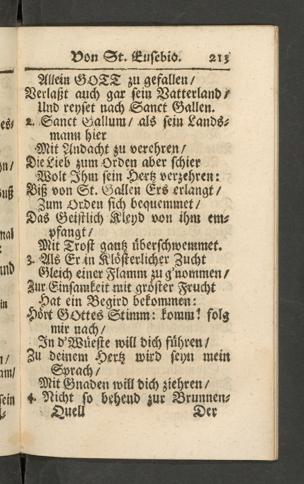 Von St. Eusebio. 213
Allein GOTT zu gefallen /
Verlaßt auch gar sein Vatterland /
Und reyset nach Sanct Gallen.
2. Sanct Gallum / als sein Lands-
mann hier
Mit Andacht zu verehren /
Die Lieb zum Orden aber schier
Wolt Ihm sein Hertz verzehren:
Biß von St. Gallen Ers erlangt /
Zum Orden sich bequemmet /
Das Geistlich Kleyd von ihm em-
pfangt /
Mit Trost gantz überschwemmet.
3. Als Er in Klösterlicher Zucht
Gleich einer Flamm zu g'nommen /
Zur Einsamkeit mit gröster Frucht
Hat ein Begird bekommen:
Hört GOttes Stimm: komm! folg
mir nach /
In d'Wüeste will dich führen /
Zu deinem Hertz wird seyn mein
Sprach /
Mit Gnaden will dich ziehren /
4. Nicht so behend zur Brunnen-
Quell Der